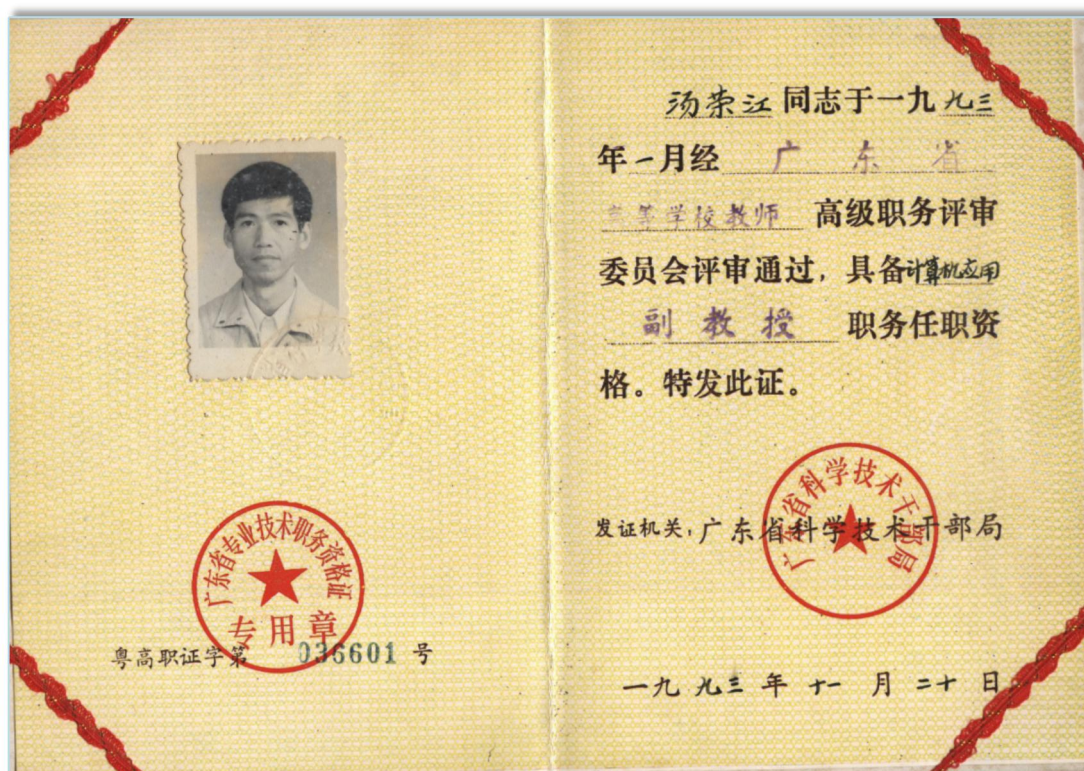 广东省专业技术职务资格证
专用章
粤高职证字第 036601 号
汤荣江同志于一九九三
年一月经 广东省
高等学校教师 高级职务评审
委员会评审通过，具备计算机应用
副教授 职务任职资
格。特发此证。
广东省科学技术干部局
发证机关：广东省科学技术干部局
一九九三年十一月二十日